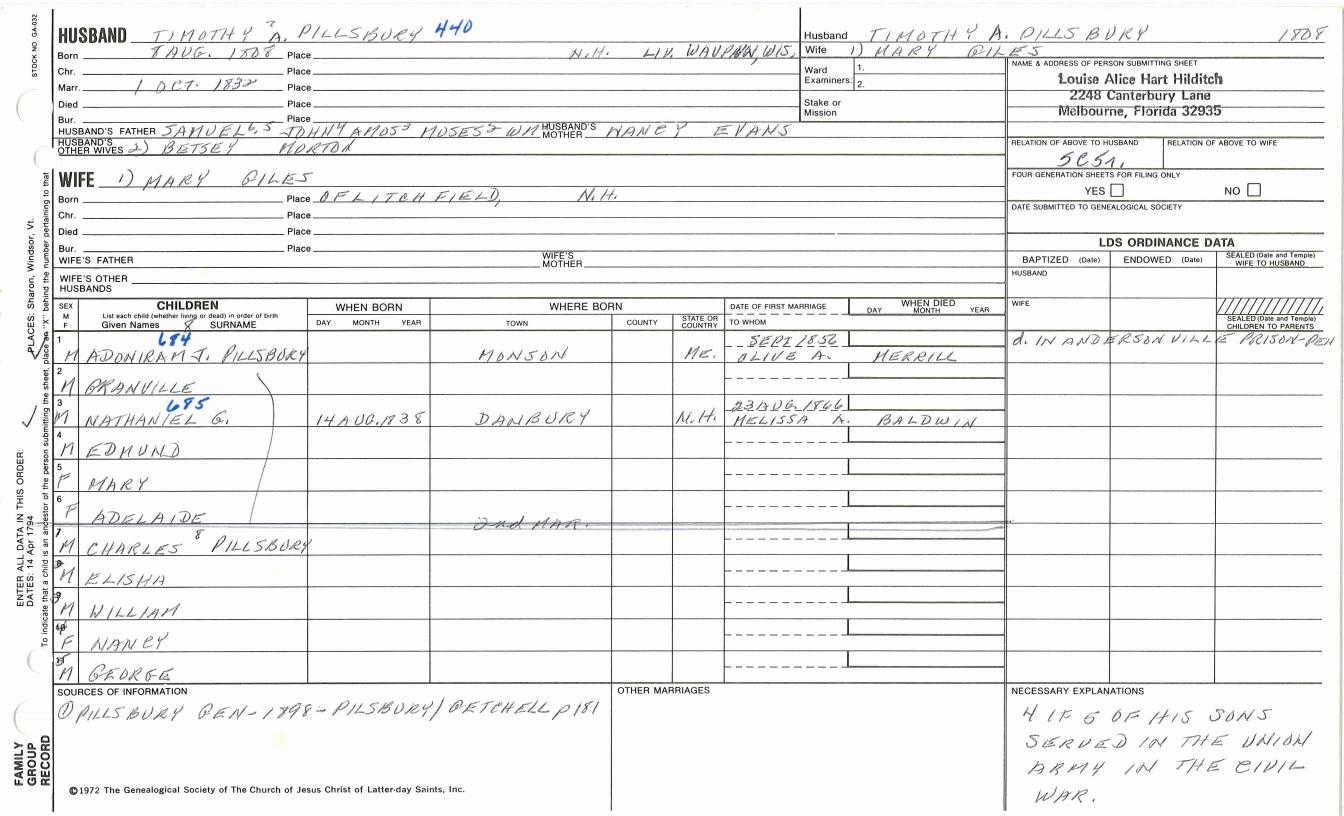 STOCK NO. GA-032
HUSBAND TIMOTHY 7 A. PILLSBURY 440
Born 8 AUG. 1808 Place N.H. LIV. WAUPAN, WIS.
Chr. Place
Marr. 1 OCT. 1832 Place
Died Place
Bur. Place
HUSBAND'S FATHER SAMUEL 6,5 JOHN 4 AMOS 3 MOSES 2 WM HUSBAND'S MOTHER NANCY EVANS
HUSBAND'S OTHER WIVES 2) BETSEY MORTON
Husband TIMOTHY A. PILLSBURY 1808
Wife 1) MARY GILES
Ward Examiners: 1.
2.
Stake or Mission
NAME & ADDRESS OF PERSON SUBMITTING SHEET
Louise Alice Hart Hilditch
2248 Canterbury Lane
Melbourne, Florida 32935
RELATION OF ABOVE TO HUSBAND RELATION OF ABOVE TO WIFE
5C5r.
FOUR GENERATION SHEETS FOR FILING ONLY
YES NO
DATE SUBMITTED TO GENEALOGICAL SOCIETY
WIFE 1) MARY GILES
Born Place OF LITCHFIELD, N.H.
Chr. Place
Died Place
Bur. Place
WIFE'S FATHER WIFE'S MOTHER
WIFE'S OTHER HUSBANDS
LDS ORDINANCE DATA
BAPTIZED (Date) ENDOWED (Date) SEALED (Date and Temple) WIFE TO HUSBAND
HUSBAND
WIFE
SEALED (Date and Temple) CHILDREN TO PARENTS
SEX M F CHILDREN WHEN BORN WHERE BORN DATE OF FIRST MARRIAGE WHEN DIED
List each child (whether living or dead) in order of birth
Given Names 8 SURNAME DAY MONTH YEAR TOWN COUNTY STATE OR COUNTRY TO WHOM DAY MONTH YEAR
684 SEPT 1856
1 M ADONIRAM J. PILLSBURY MONSON ME. OLIVE A. MERRILL d. IN ANDERSONVILLE PRISON-PEN
2 M GRANVILLE
685 23 AUG. 1866
3 M NATHANIEL G. 14 AUG. 1838 DANBURY N.H. MELISSA A. BALDWIN
4 M EDMUND
5 F MARY
6 F ADELAIDE
2nd MAR.
7 M CHARLES 8 PILLSBURY
M ELISHA
M WILLIAM
F NANCY
M GEORGE
SOURCES OF INFORMATION
① PILLSBURY GEN-1898-PILSBURY/GETCHELL p181
OTHER MARRIAGES
NECESSARY EXPLANATIONS
4 IF 5 OF HIS SONS
SERVED IN THE UNION
ARMY IN THE CIVIL
WAR.
©1972 The Genealogical Society of The Church of Jesus Christ of Latter-day Saints, Inc.
FAMILY
GROUP
RECORD
ENTER ALL DATA IN THIS ORDER:
DATES: 14 Apr 1794
PLACES: Sharon, Windsor, Vt.
To indicate that a child is an ancestor of the person submitting the sheet, place an "X" behind the number pertaining to that